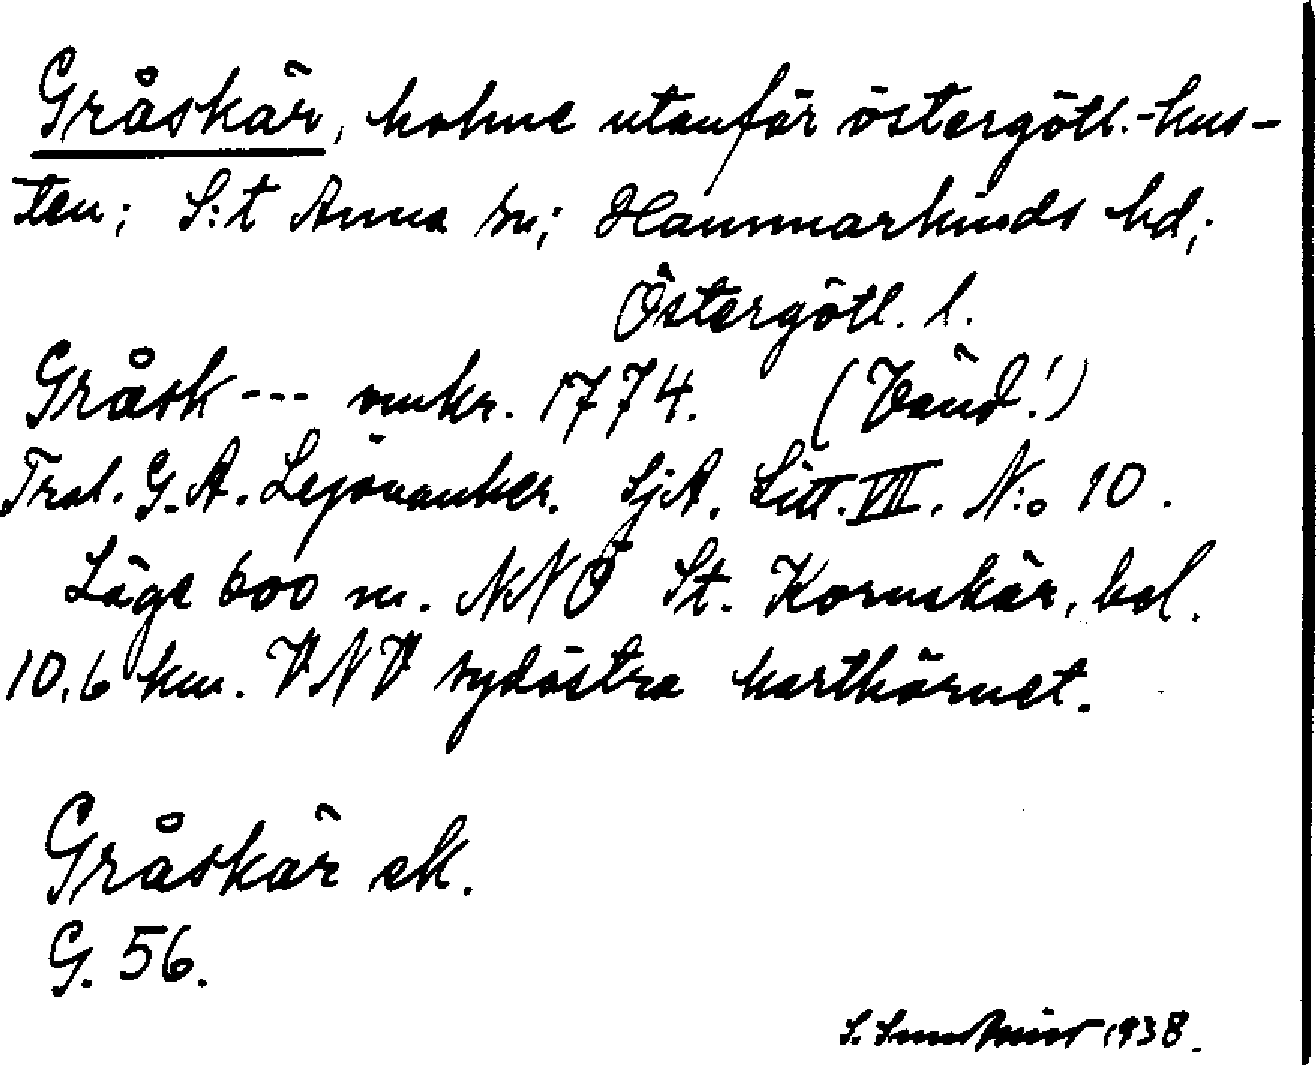 Gråskär, holme utanför östergötl.-kus-
ten; S:t Anna sn; Hammarkinds hd;
Östergötl. l.
Gråsk--- omkr. 1774. (Vänd!)
Trol. G. A. Lejonanker. SjA. Litt. VII. N:o 10.
Läge 600 m. NNO St. Kornskär, bel.
10,6 km. VNV sydöstra karthörnet.
Gråskär ek.
G. 56.
S. 1938.